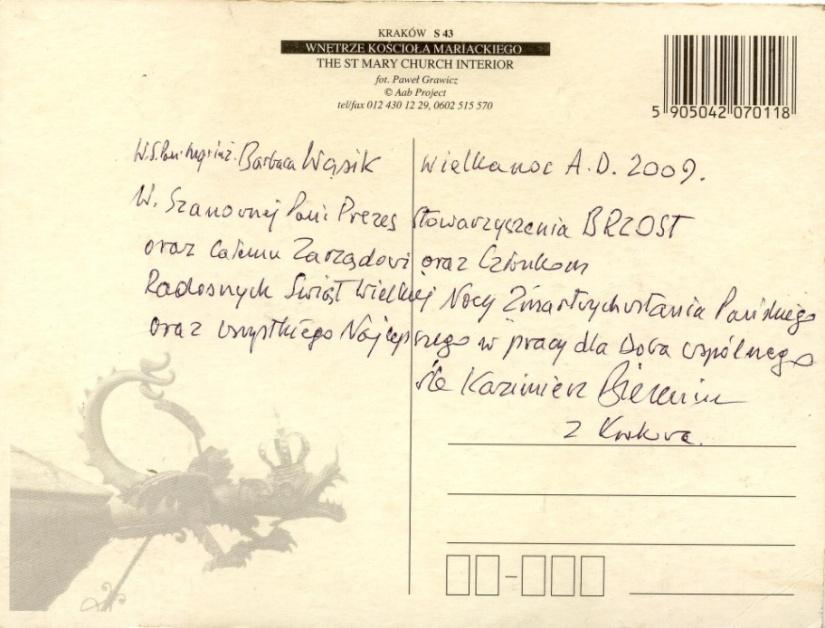 KRAKÓW S 43
WNĘTRZE KOŚCIOŁA MARIACKIEGO
THE ST MARY CHURCH INTERIOR
fot. Paweł Grawicz
© Aab Project
tel/fax 012 430 12 29, 0602 515 570
5 905042 070118
W.S. Pani mgr inż. Barbara Wąsik
Wielkanoc A.D. 2009.
W. Szanownej Pani Prezes Stowarzyszenia BRZOST
oraz całemu Zarządowi oraz Członkom
Radosnych Świąt Wielkiej Nocy Zmartwychwstania Pańskiego
oraz wszystkiego Najlepszego w pracy dla Dobra wspólnego
Kazimierz
z Krakowa.